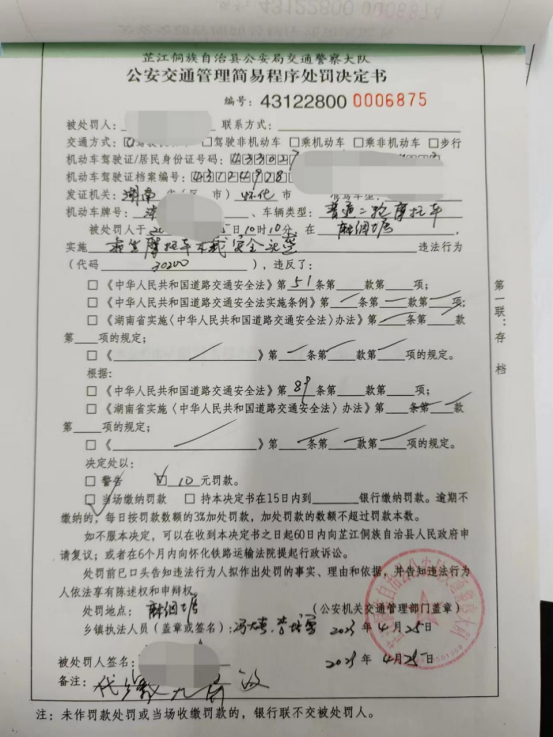 芷江侗族自治县公安局交通警察大队
公安交通管理简易程序处罚决定书
编号：43122800 0006875
被处罚人： 联系方式：
交通方式： 驾驶非机动车 □乘机动车 □乘非机动车 □步行
机动车驾驶证/居民身份证号码：
机动车驾驶证档案编号：431228
发证机关：湖南 市）怀化 市
机动车牌号： 、车辆类型：普通二轮摩托车
被处罚人于20 10时10分，在
实施 乘坐摩托车不戴安全头盔 违法行为
（代码 ），违反了：
□《中华人民共和国道路交通安全法》第51条第 款第 项；
□《中华人民共和国道路交通安全法实施条例》第 条第 款第 项；
□《湖南省实施〈中华人民共和国道路交通安全法〉办法》第 条第 款
第 项的规定；
□《 》第 条第 款第 项的规定。
根据：
□《中华人民共和国道路交通安全法》第89条第 款第 项；
□《湖南省实施〈中华人民共和国道路交通安全法〉办法》第 条第 款
第 项的规定；
□《 》第 条第 款第 项的规定。
决定处以：
□警告 ☑10元罚款。
☑当场缴纳罚款 □持本决定书在15日内到 银行缴纳罚款。逾期不
缴纳的，每日按罚款数额的3%加处罚款，加处罚款的数额不超过罚款本数。
如不服本决定，可以在收到本决定书之日起60日内向芷江侗族自治县人民政府申
请复议；或者在6个月内向怀化铁路运输法院提起行政诉讼。
处罚前已口头告知违法行为人拟作出处罚的事实、理由和依据，并告知违法行为
人依法享有陈述权和申辩权。
处罚地点： （公安机关交通管理部门盖章）
乡镇执法人员（盖章或签名）： 年4月25日
被处罚人签名： 年4月25日
备注：
注：未作罚款处罚或当场收缴罚款的，银行联不交被处罚人。
第一联：存档